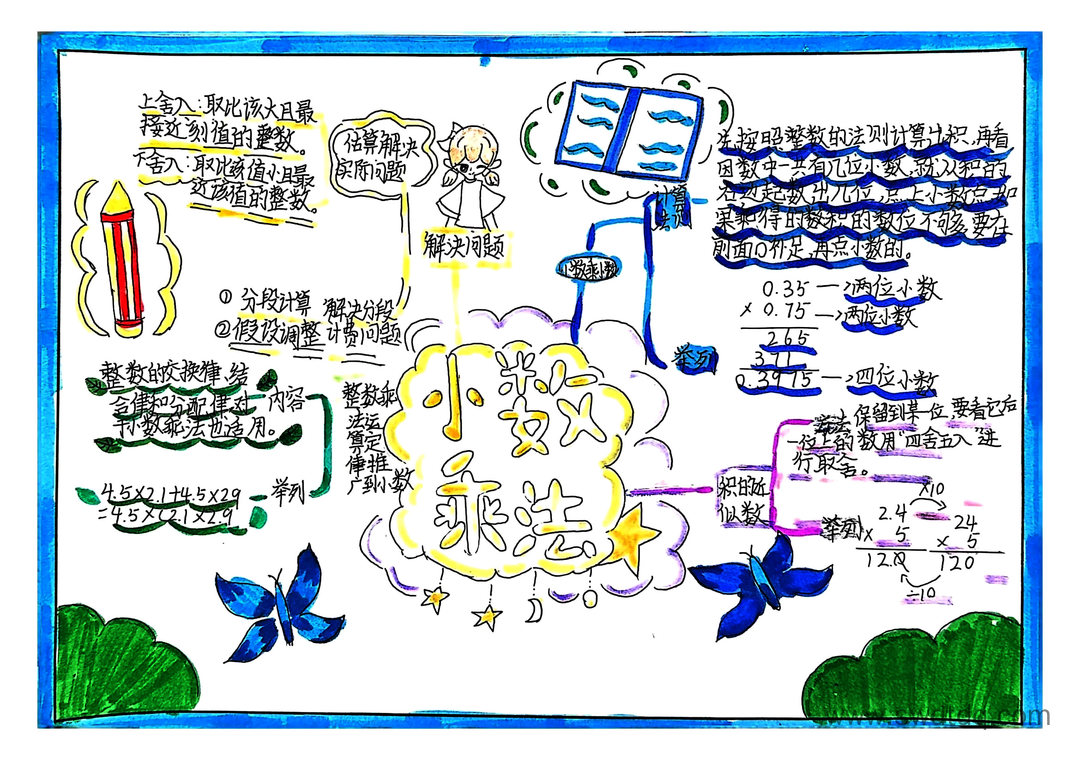 小数
乘法
上舍入:取比该大且最
接近该值的整数。
下舍入:取比该值小且最
近该值的整数。
估算解决
实际问题
解决问题
① 分段计算 解决分段
②假设调整 计费问题
整数的交换律,结
合律和分配律对
小数乘法也适用。
内容
4.5×2.1+4.5×29
=4.5×(2.1×2.9
举列
整数乘
法运
算定
律推
广到小数
小数乘小数
计算
法则
先按照整数的法则计算出积,再看
因数中一共有几位小数,就从积的
右边起数出几位,点上小数点,如
果乘得的数积的数位不够,要在
前面0补足,再点小数的。
举列
0.35 →两位小数
× 0.75 →两位小数
265
311
0.3975 →四位小数
积的近
似数
保留到某一位,要看它后
一位上的数用“四舍五入”进
行取舍。
举列
2.4
× 5
12.0
×10
24
× 5
120
÷10